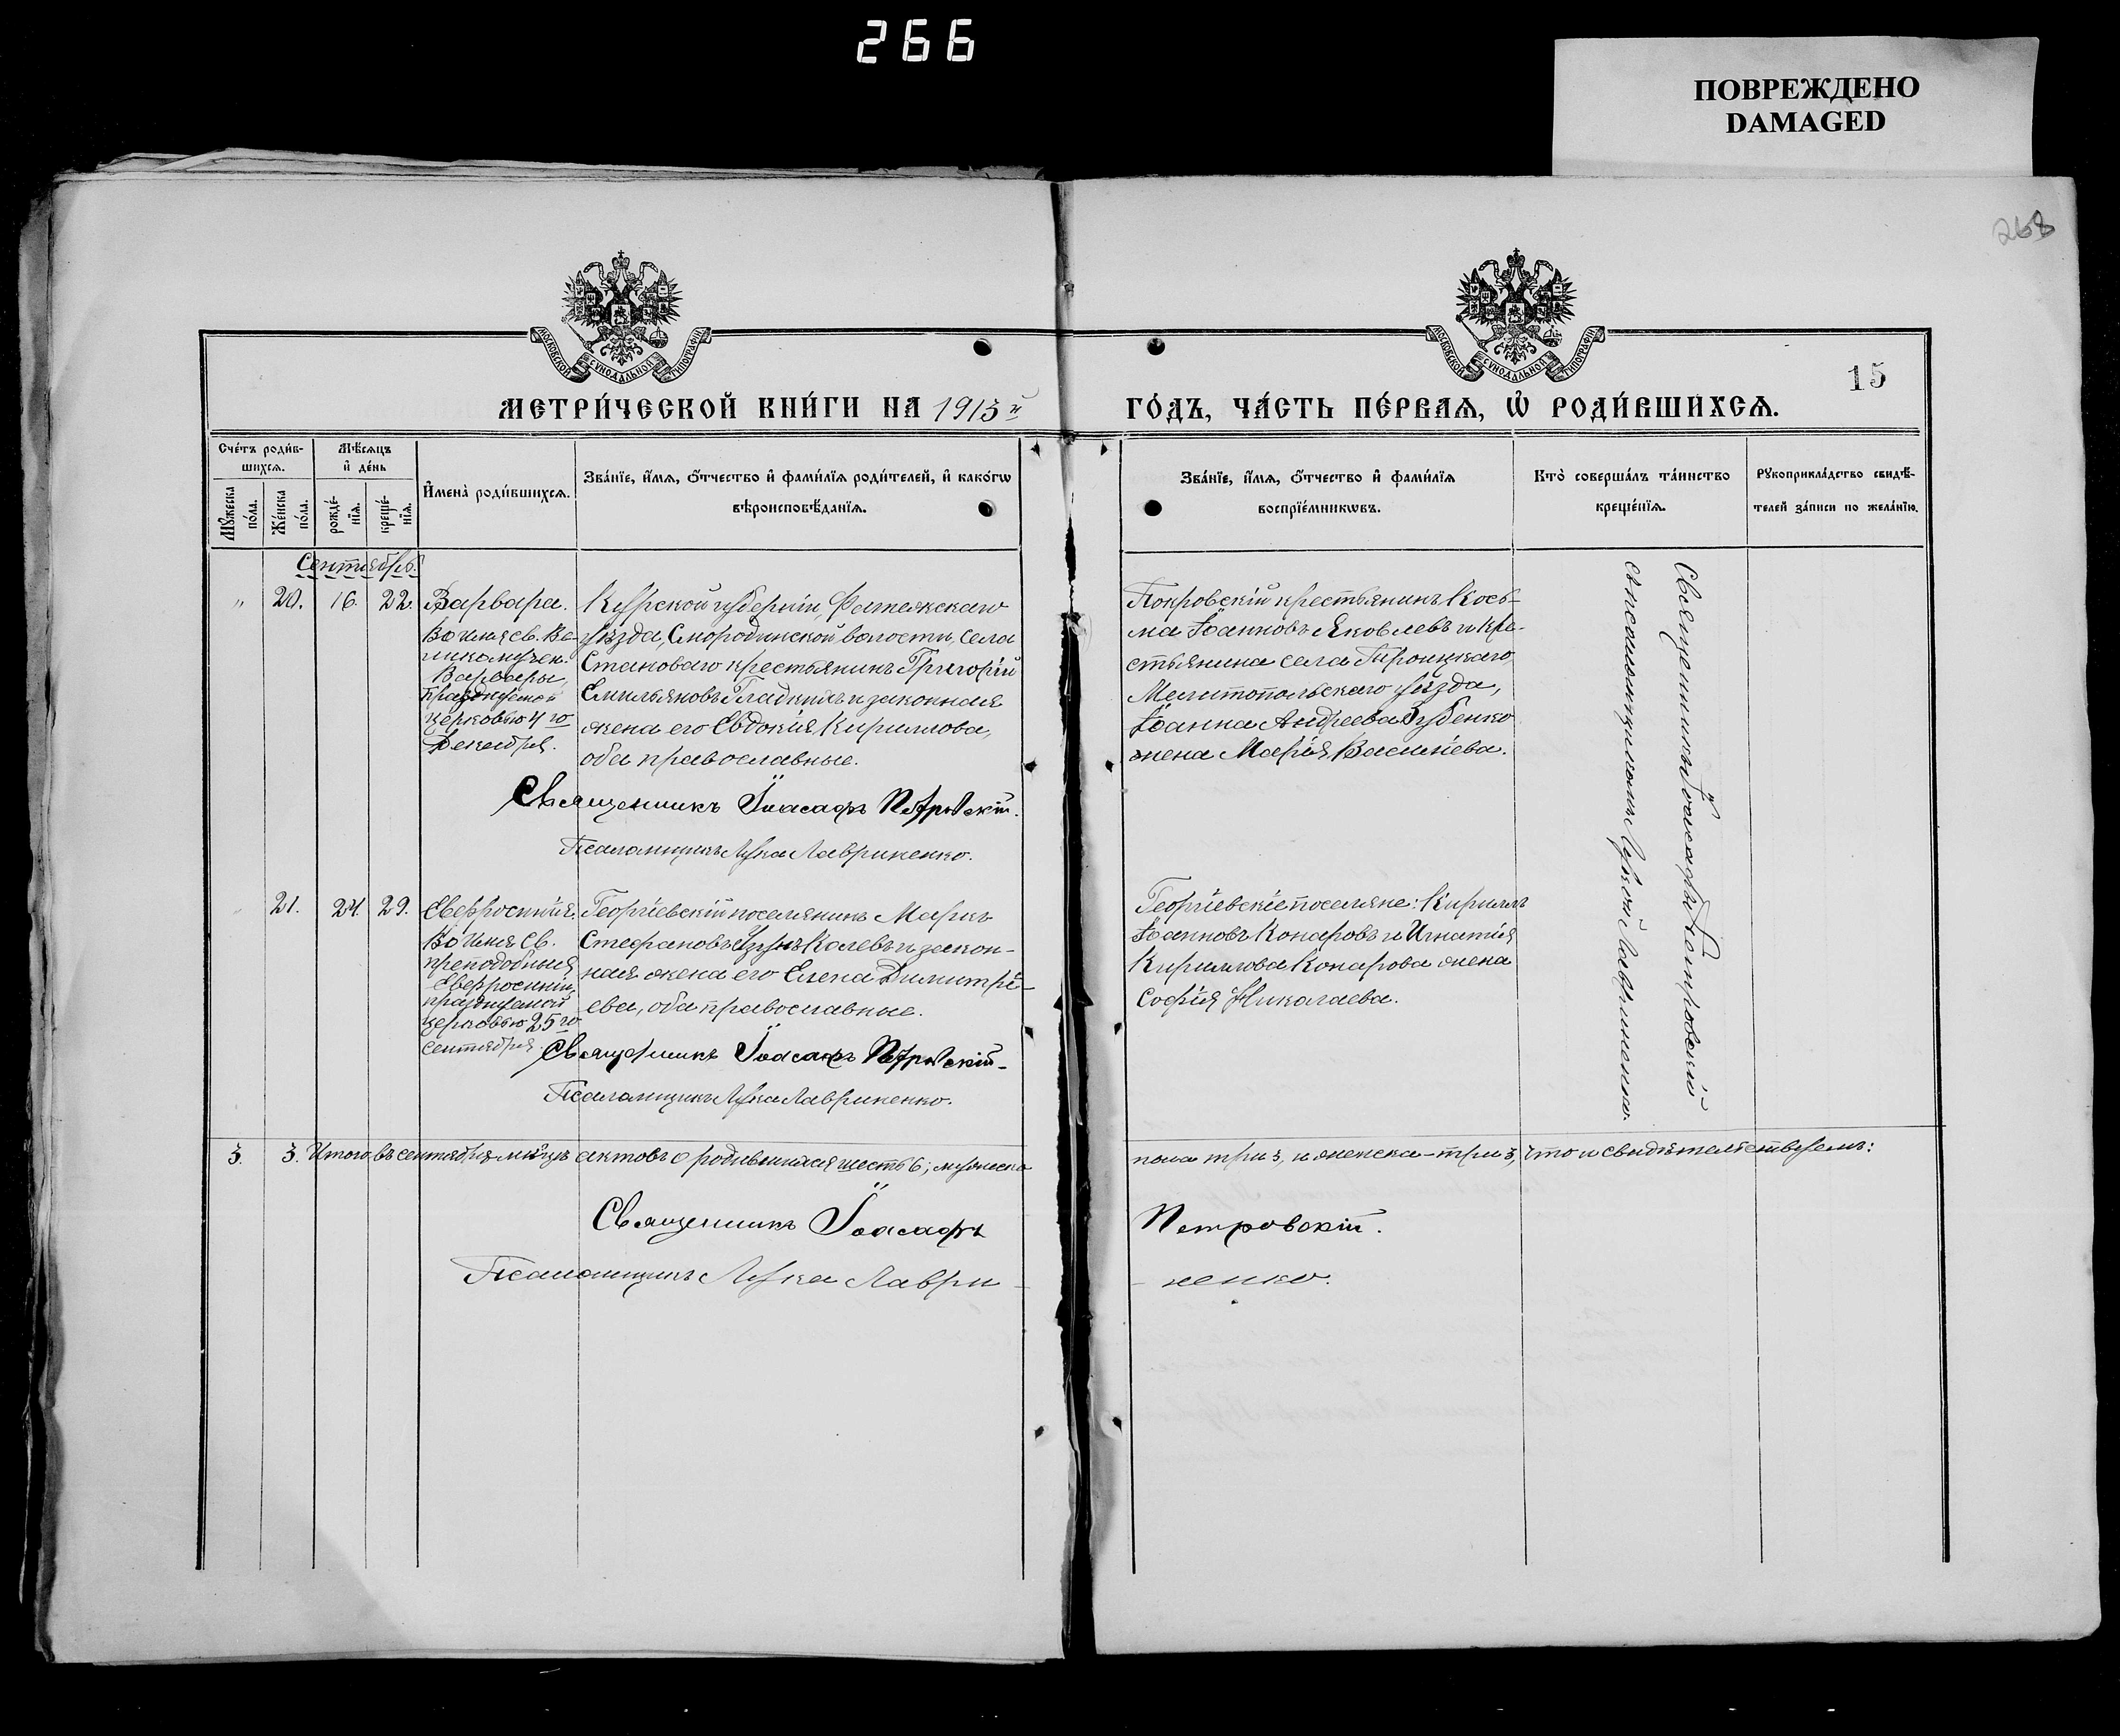 266
ПОВРЕЖДЕНО
DAMAGED
268
МОСКОВСКОЙ СУНОДАЛЬНОЙ ТИПОГРАФІИ
МОСКОВСКОЙ СУНОДАЛЬНОЙ ТИПОГРАФІИ
15
МЕТРИ́ЧЕСКОЙ КНИ́ГИ НА 1913 й
ГО́ДЪ, ЧА́СТЬ ПЕ́РВАѦ, Ѡ҆ РОДИ́ВШИХСѦ.
Сче́тъ роди́в-
шихсѧ.
Мѣ́сѧцъ
и҆ де́нь
Мꙋ́жеска
по́ла.
Же́нска
по́ла.
рожде́-
нїѧ.
креще́-
нїѧ.
И҆мена̀ роди́вшихсѧ.
Зва́нїе, и҆́мѧ, ѻ҆́тчество и҆ фами́лїѧ роди́телей, и҆ како́гѡ
вѣроисповѣ́данїѧ.
Зва́нїе, и҆́мѧ, ѻ҆́тчество и҆ фами́лїѧ
воспрїе́мникѡвъ.
Кто̀ соверша́лъ та́инство
креще́нїѧ.
Рꙋкоприкла́дство свидѣ́-
телей за́писи по жела́нїю.
Сентябрь.
" 20. 16. 22. Варвара.
Во имя св. Ве-
ликомучен.
Варвары,
празднуемой
церковью 4го
Декабря.
Курской губерніи, Фатежскаго
уѣзда, Смородинской волости, села
Становаго крестьянинъ Григорій
Емильяновъ Гладкихъ и законная
жена его Евдокія Кириллова,
оба православные.
Священникъ Іоасафъ Петровскій.
Псаломщикъ Лука Лавриненко.
Покровскій крестьянинъ Кось-
ма Іоанновъ Яковлевъ и кре-
стьянина села Троицкаго,
Мелитопольскаго уѣзда,
Іоанна Андреева Зубенко
жена Марія Василіева.
Священникъ Іоасафъ Петровскій
съ псаломщикомъ Лукой Лавриненко.
21. 24. 29. Евфросинія.
Во имя св.
преподобныя
Евфросиніи,
празднуемой
церковью 25го
сентября.
Георгіевскій поселянинъ Маркъ
Стефановъ Колевъ и закон-
ная жена его Елена Димитрі-
ева, оба православные.
Священникъ Іоасафъ Петровскій.
Псаломщикъ Лука Лавриненко.
Георгіевскіе поселяне: Кириллъ
Іоанновъ Конаровъ и Игнатія
Кириллова Конарова жена
Софія Николаева.
3. 3. Итого въ сентябрѣ мѣсяцѣ актовъ о родившихся шесть 6; мужеска
пола три 3, и женска – три 3, что и свидѣтельствуемъ:
Священникъ Іоасафъ
Петровскій.
Псаломщикъ Лука Лаври-
- ненко.